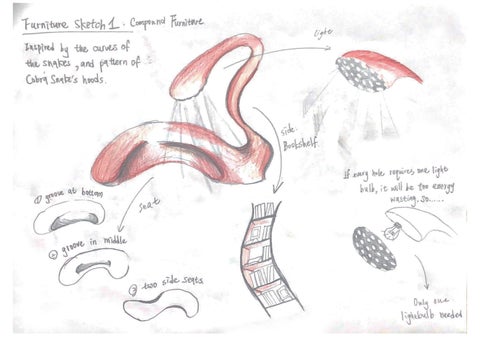 Furniture Sketch 1. Compound Furniture
Inspired by the curves of
the snakes, and pattern of
Cobra Snake's hoods.
light
side
Bookshelf
seat
① groove at bottom
② groove in middle
③ two side seats
If every hole requires one light
bulb, it will be too energy
wasting. so......
Only one
lightbulb needed